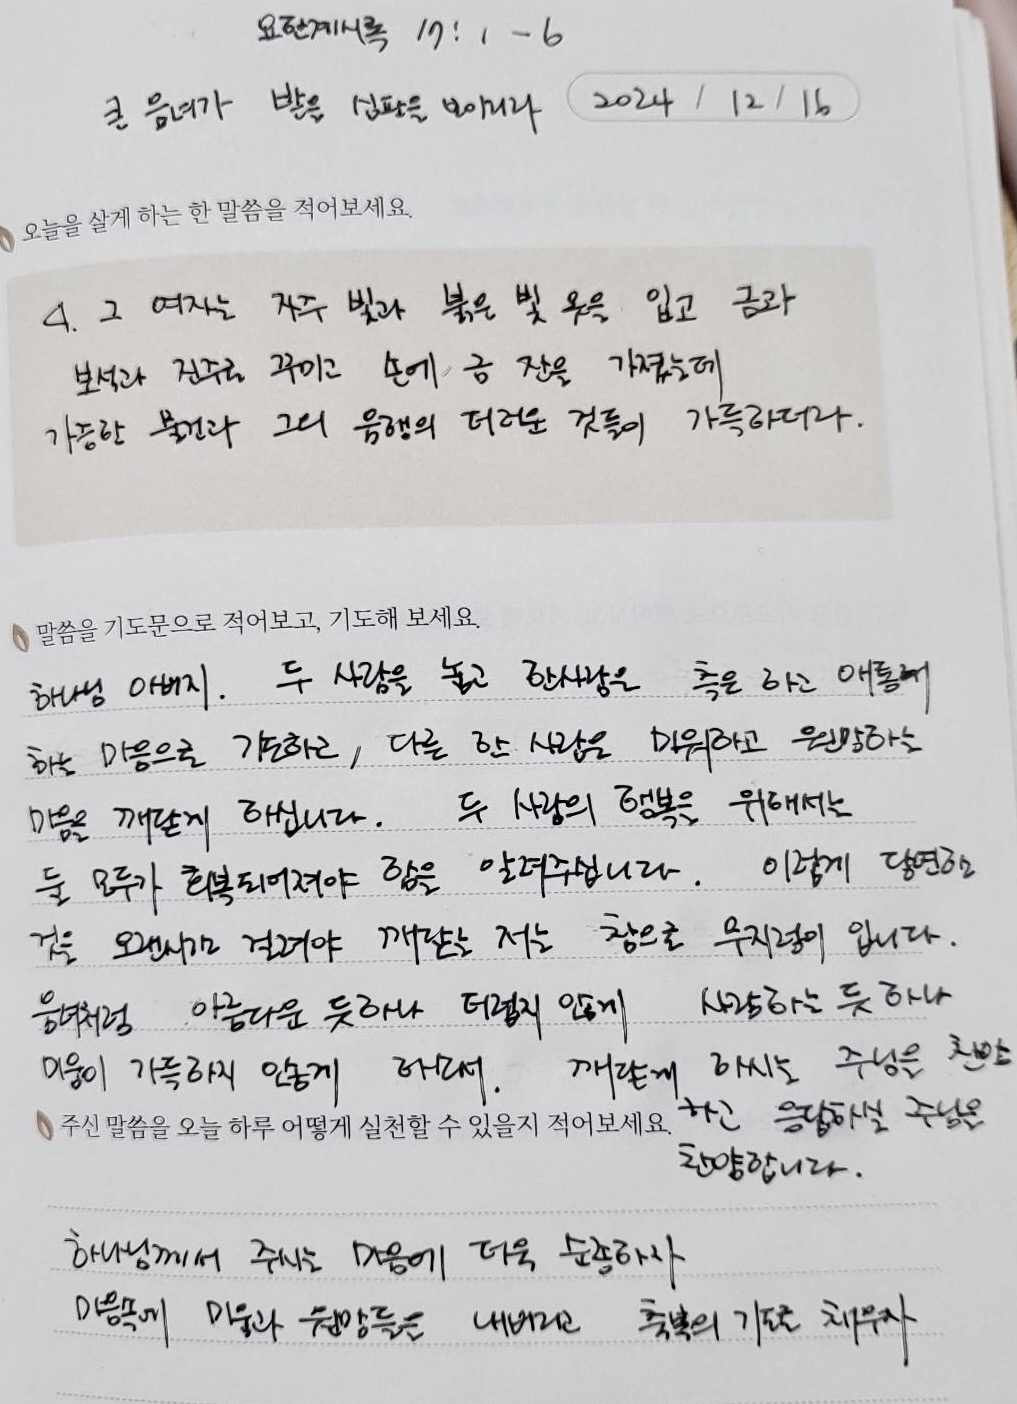 요한계시록 17:1-6
큰 음녀가 받을 심판을 보이리라 2024/12/16
오늘을 살게 하는 한 말씀을 적어보세요.
4. 그 여자는 자주 빛과 붉은 빛 옷을 입고 금과
보석과 진주로 꾸미고 손에 금 잔을 가졌는데
가증한 물건과 그의 음행의 더러운 것들이 가득하더라.
말씀을 기도문으로 적어보고, 기도해 보세요.
하나님 아버지. 두 사람을 놓고 한사람은 측은 하고 애통해
하는 마음으로 기도하고, 다른 한 사람은 미워하고 원망하는
마음을 깨닫게 하십니다. 두 사람의 행복을 위해서는
둘 모두가 회복되어져야 함을 알려주십니다. 이렇게 당연한
것을 오랜시간 걸려야 깨닫는 저는 참으로 무지렁이 입니다.
음녀처럼 아름다운 듯하나 더럽지 않게 사랑하는 듯 하나
미움이 가득하지 않게 하소서. 깨닫게 하시는 주님을 찬양
하고 응답하실 주님을
찬양합니다.
주신 말씀을 오늘 하루 어떻게 실천할 수 있을지 적어보세요.
하나님께서 주시는 마음에 더욱 순종하자
마음속에 미움과 원망들은 내버리고 축복의 기도로 채우자